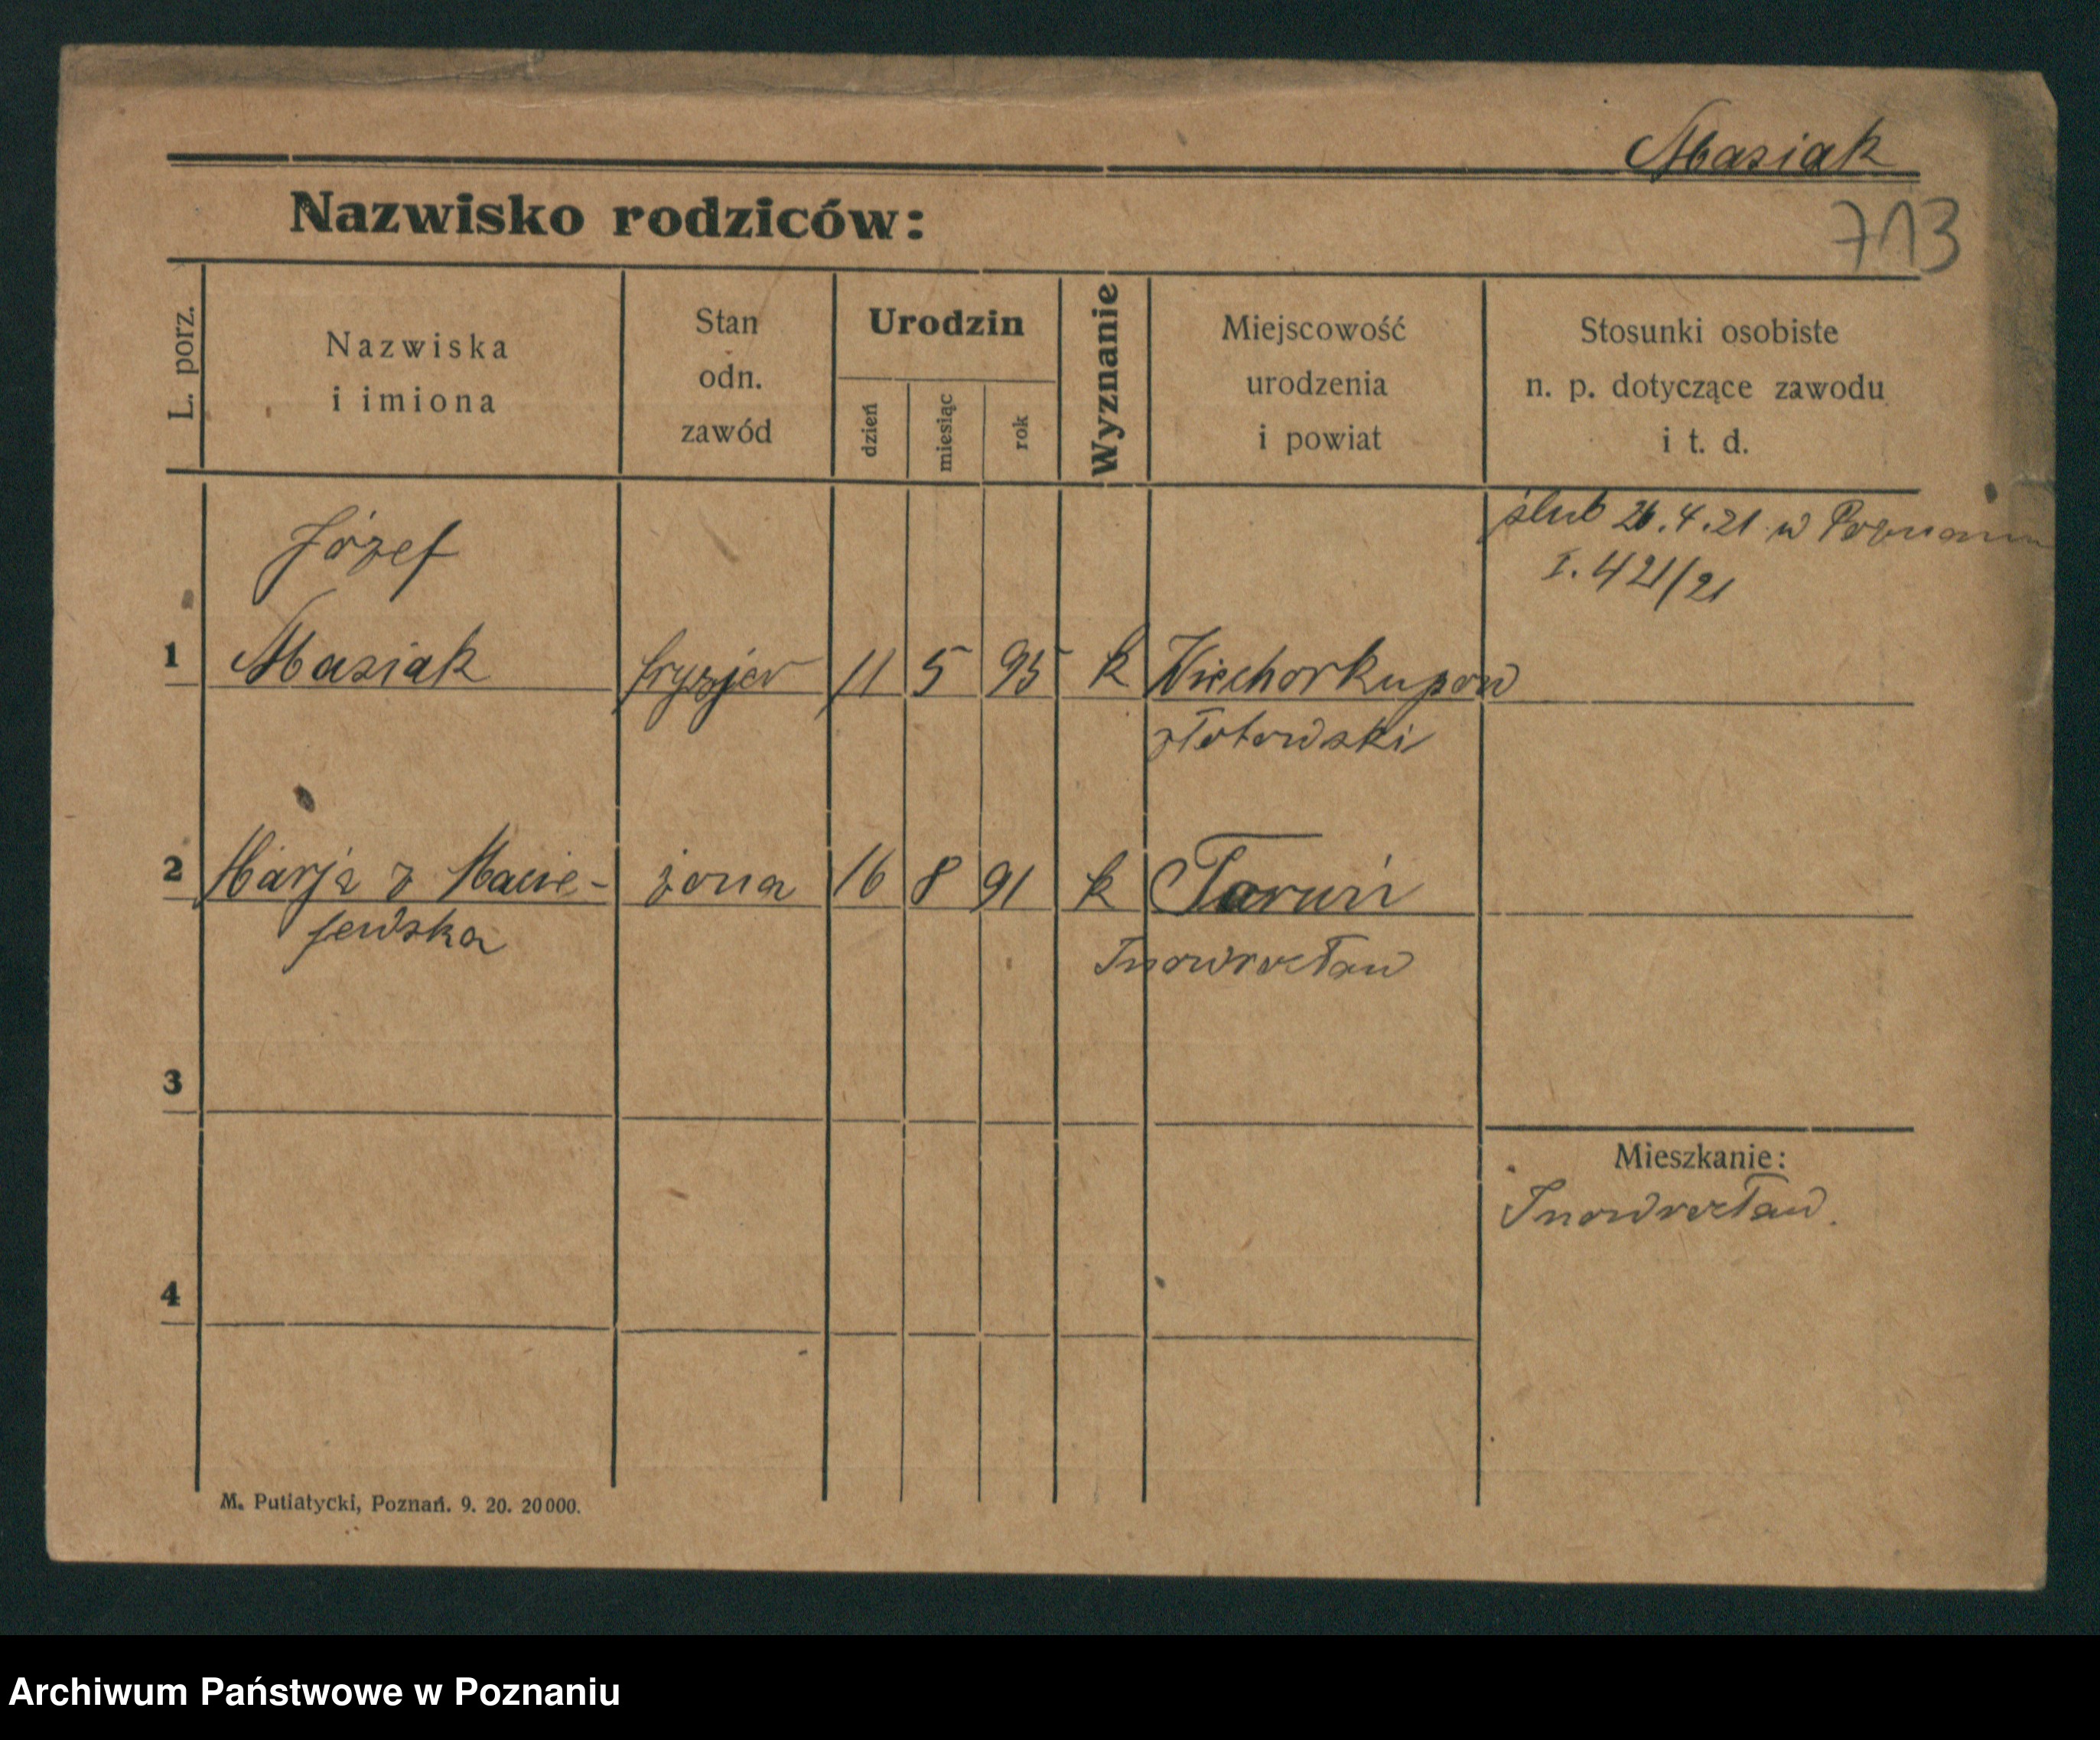 Masiak
Nazwisko rodziców:
713
L. porz.
Nazwiska
i imiona
Stan
odn.
zawód
Urodzin
dzień
miesiąc
rok
Wyznanie
Miejscowość
urodzenia
i powiat
Stosunki osobiste
n. p. dotyczące zawodu
i t. d.
ślub 26.4.21 w Poznaniu
I. 421/21
Józef
1 Masiak fryzjer 11 5 95 k
złotowski
2 Marja z Macie- żona 16 8 91 k Toruń
jewska
Inowrocław
3
Mieszkanie:
Inowrocław.
4
M. Putiatycki, Poznań. 9. 20. 20000.
Archiwum Państwowe w Poznaniu